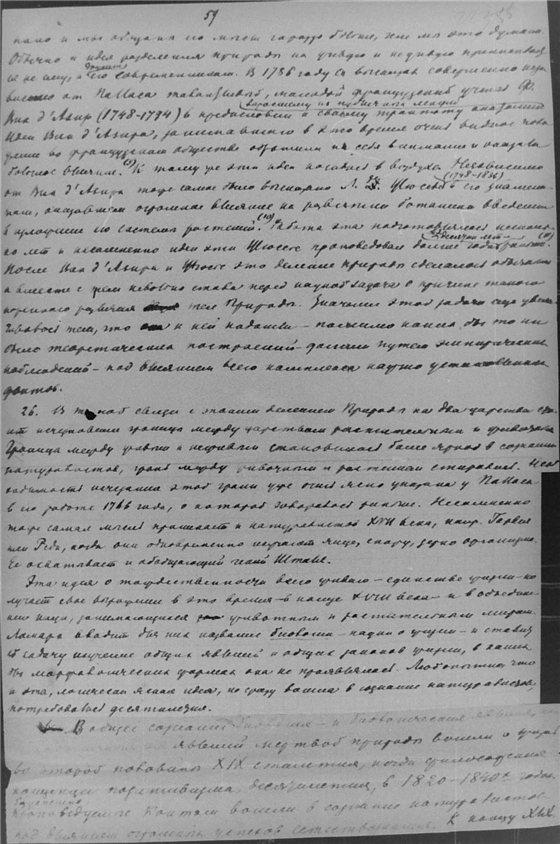 59
нано и мы общи на го много гораздо больше, чем мы это думаем.
Обычно и идея разделения природы на живую и неживую приписывает-
ся не ему, а другим его современникам. В 1786 году ее высказал совершенно неза-
висимо от Палласа талантливый, молодой французский ученый Ф.
Вик д'Азир (1748-1794) в предисловии к своему трактату анатомии
Идеи Вик д'Азира, занимавшего в это время очень видное поло-
жение во французском обществе обратили на себя внимание и оказали
большое влияние. К тому же эта идея носилась в воздухе. Независимо
от Вик д'Азира то же самое было высказано А. Жюсье в его знамени-
том, оказавшем огромное влияние на развитие ботаники введении
в изложение его системы растений. Работа эта подготовлялась несколь-
ко лет и несомненно идеи эти Жюсье проповедовал более
После Вик д'Азира и Жюсье это деление природы сделалось обычным
и вместе с тем невольно ставило перед наукой задачу о причине такого
коренного различия тел Природы. Значение этой задачи еще увели-
чивалось тем, что к ней подошли - помимо каких бы то ни
было теоретических построений - данными путем эмпирических
наблюдений - под влиянием всего комплекса научно установленных
фактов.
26. В тесной связи с этим делением Природы на два царства сто-
ит исчезновение границы между царствами растительным и животным.
Граница между живым и неживым становилась более яркой в сознании
натуралистов, грань между животным и растением стиралась. Необ-
ходимость исчезания этой грани уже очень ясно указана у Палласа
в его работе 1766 года, о которой говорилось раньше. Несомненно
та же самая мысль проникает и натуралистов XVII века, напр. Гарвея
или Реди, когда они одновременно изучают яйцо, спору, зерно организмов.
Ее охватывает и обобщающий гений Шталя.
Эта идея о тождественности всего живого - единстве жизни - по-
лучает свое выражение в это время - в конце XVIII века - и в объедине-
нии наук, занимающихся животным и растительным миром.
Ламарк вводит для них название биологии - науки о жизни - и ставит
ей задачу изучение общих явлений и общих законов жизни, в каких
бы морфологических формах она не проявлялась. Любопытно, что
и эта, логически ясная идея, не сразу вошла в сознание натуралистов,
потребовались десятилетия.
В общее сознание биология - и биологические явления,
явлений мертвой природы вошли в жизнь
во второй половине XIX столетия, когда философские
концепции позитивизма, десятилетия, в 1820-1840х годах
проповедуемые Контом вошли в сознание натуралистов
под влиянием огромных успехов естествознания. К концу XIX